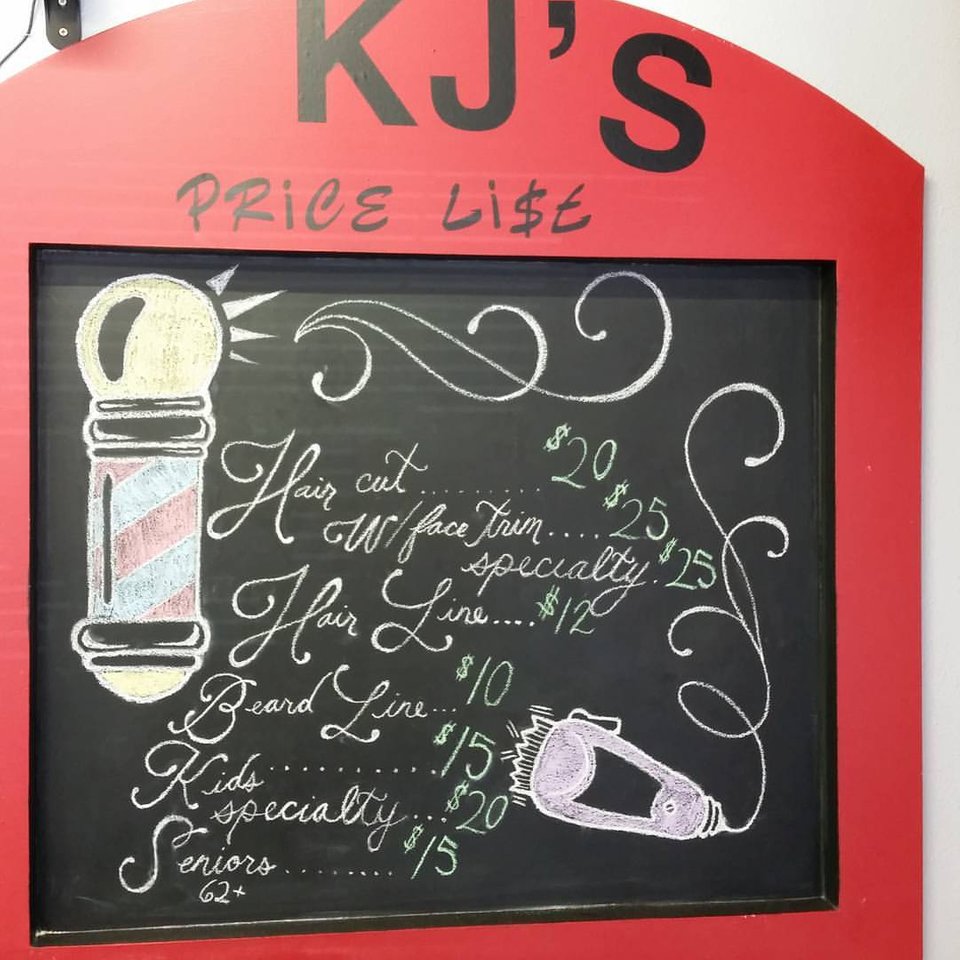 KJ'S
PRiCE Li$t
Hair cut ......... $20
W/face trim.... $25
specialty. $25
Hair Line.... $12
Beard Line... $10
Kids ............ $15
specialty... $20
Seniors ........ $15
62+